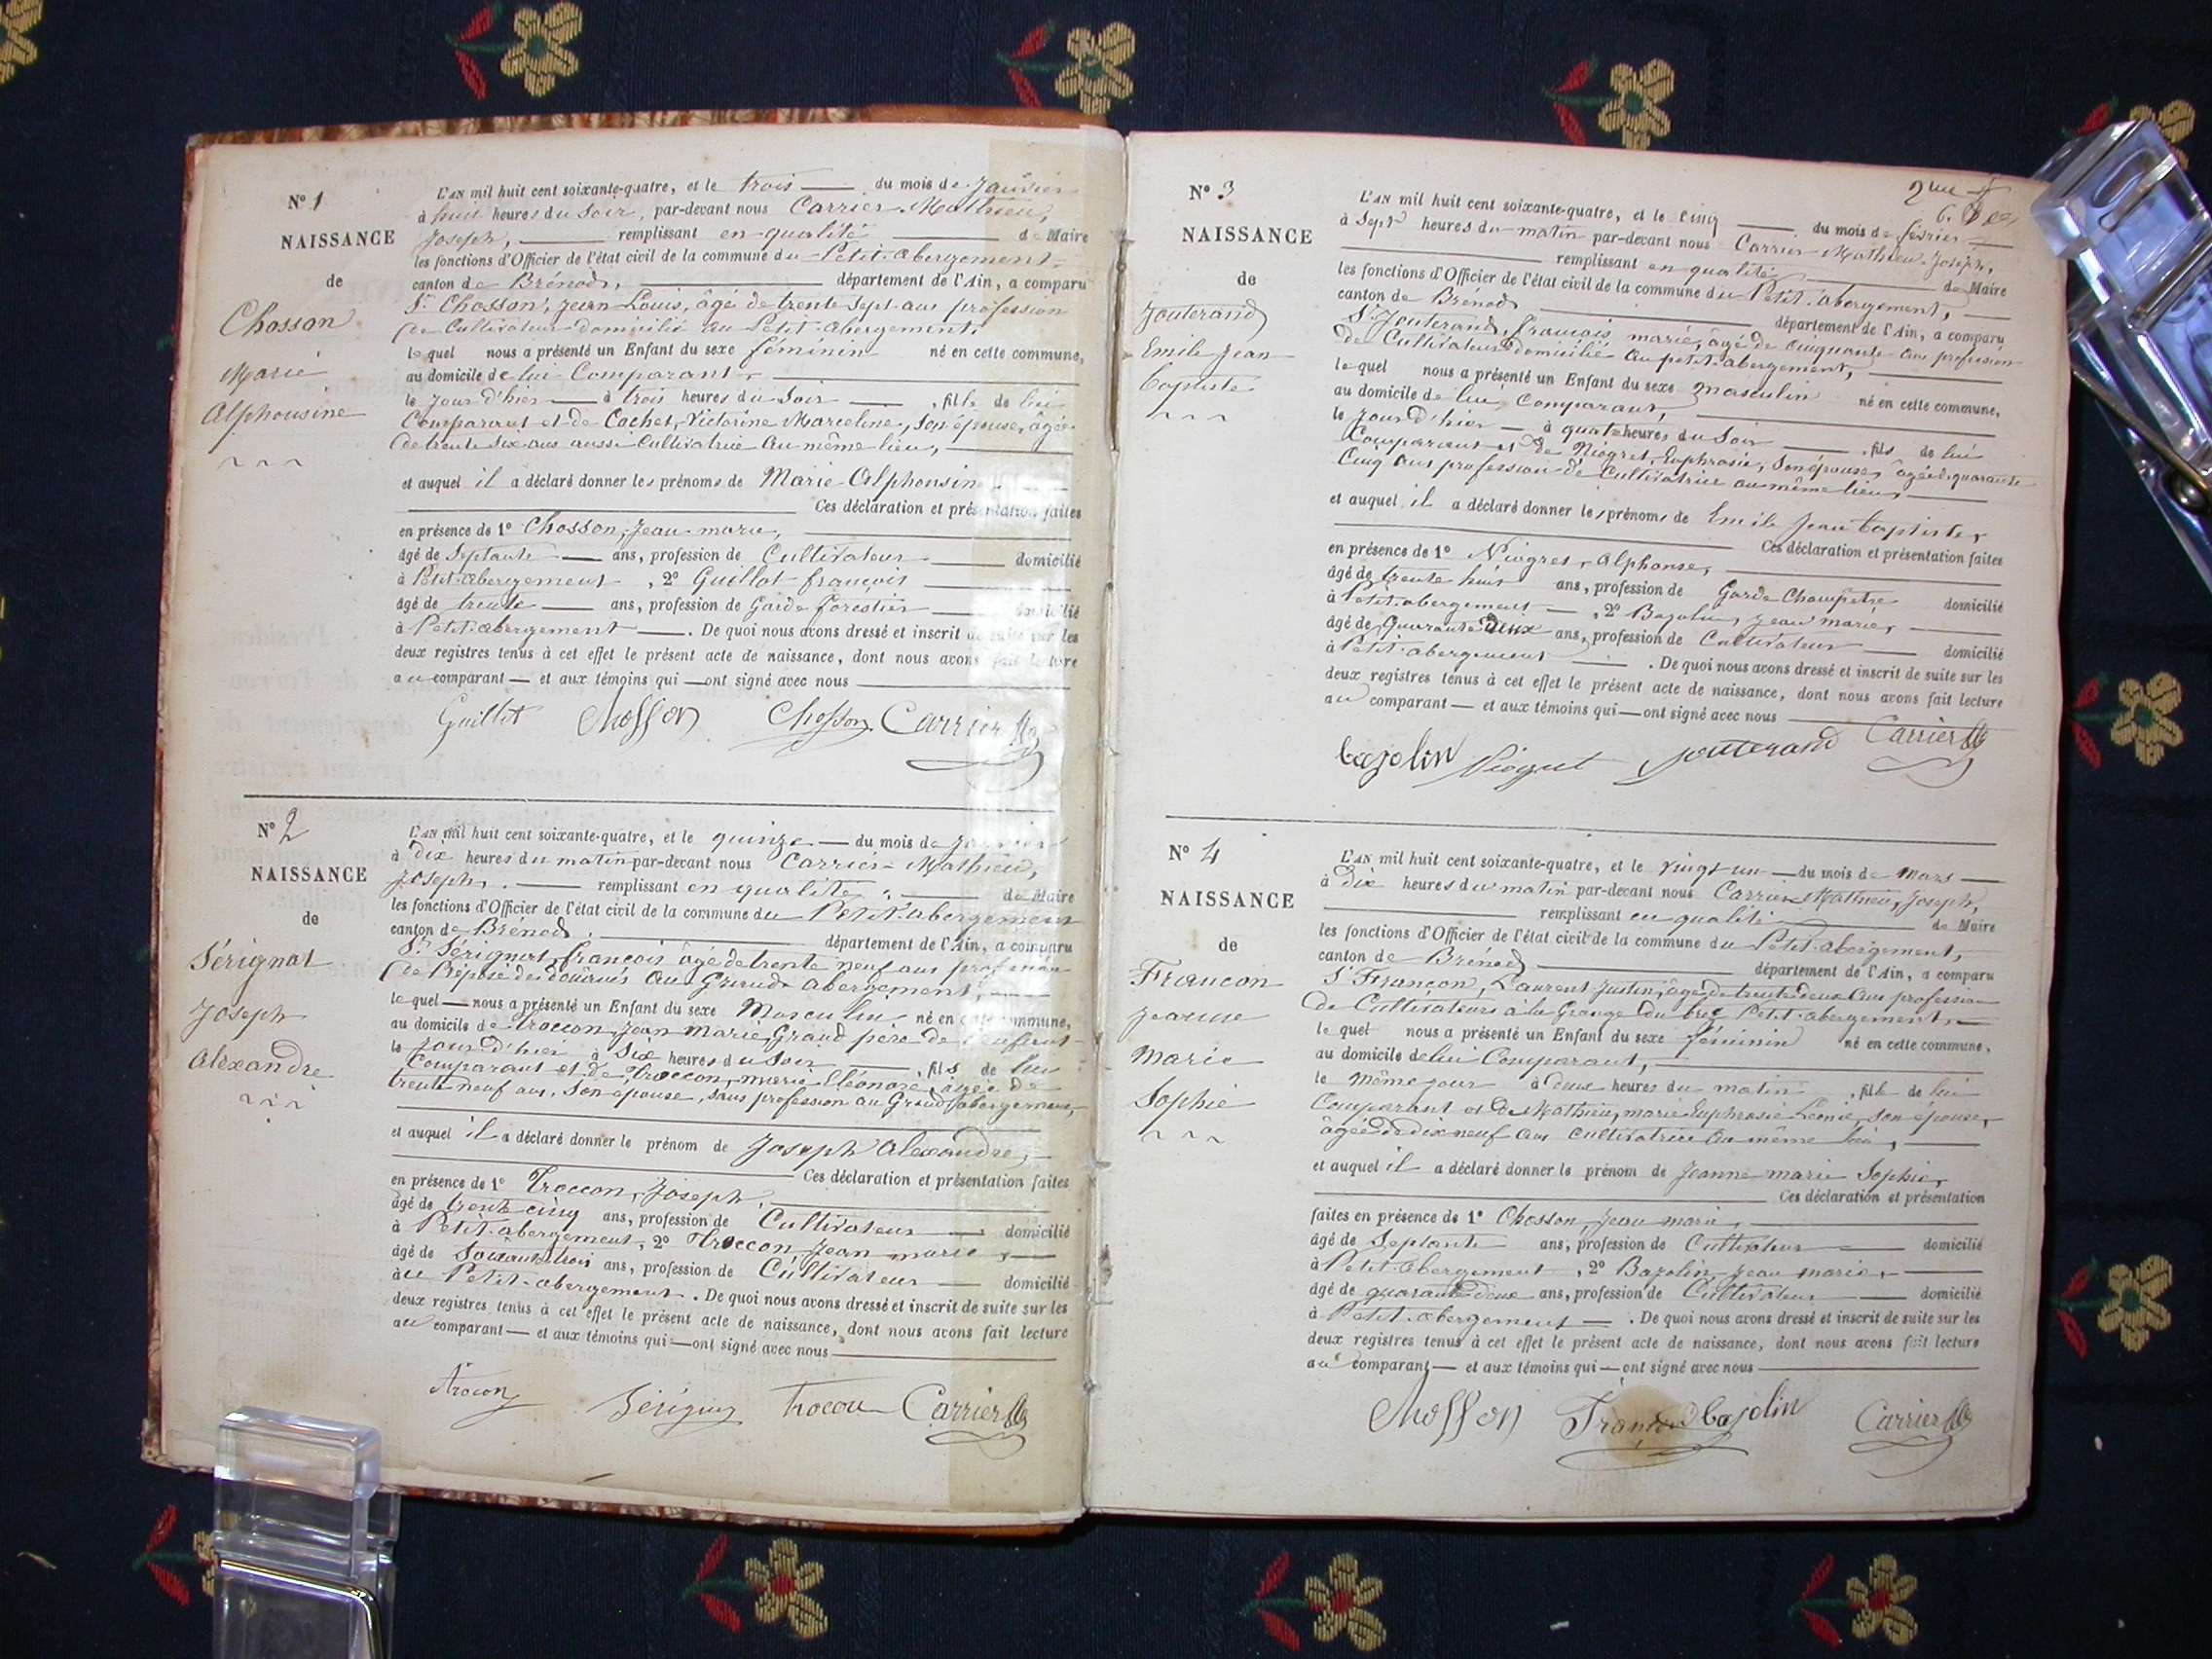 N° 1
NAISSANCE
de
Chosson
Marie
Alphonsine
L'AN mil huit cent soixante-quatre, et le trois du mois de Janvier
à huit heures du soir, par-devant nous Carrier Mathieu,
Joseph, remplissant en qualité de Maire
les fonctions d'Officier de l'état civil de la commune du Petit-abergement,
canton de Brénod, département de l'Ain, a comparu
Sr. Chosson, Jean Louis, âgé de trente sept ans profession
de Cultivateur domicilié au Petit-abergement,
lequel nous a présenté un Enfant du sexe féminin né en cette commune,
au domicile de lui Comparant,
le jour d'hier à trois heures du soir, fille de lui
Comparant et de Cochet, Victorine Marceline, son épouse, âgée
de trente six ans aussi Cultivatrice au même lieu,
et auquel il a déclaré donner les prénoms de Marie Alphonsine
Ces déclaration et présentation faites
en présence de 1° Chosson, Jean-marie,
âgé de septante ans, profession de Cultivateur domicilié
à Petit-abergement, 2° Guillot françois
âgé de trente ans, profession de Garde forestier domicilié
à Petit-abergement. De quoi nous avons dressé et inscrit de suite sur les
deux registres tenus à cet effet le présent acte de naissance, dont nous avons fait lecture
au comparant et aux témoins qui ont signé avec nous
Guillot Chosson Chosson Carrier
N° 2
NAISSANCE
de
Sérignat
Joseph
Alexandre
L'AN mil huit cent soixante-quatre, et le quinze du mois de Janvier
à Dix heures du matin par-devant nous Carrier Mathieu,
Joseph, remplissant en qualité de Maire
les fonctions d'Officier de l'état civil de la commune du Petit-abergement
canton de Brénod, département de l'Ain, a comparu
Sr. Sérignat, françois âgé de trente neuf ans profession
de Préposé des douanes au Grand abergement,
lequel nous a présenté un Enfant du sexe Masculin né en cette commune,
au domicile de Troccon, Jean Marie, Grand père de l'enfant
le jour d'hier à Six heures du soir, fils de lui
Comparant et de Troccon, marie Eléonore, âgée de
trente neuf ans, son épouse, sans profession au Grand abergement,
et auquel il a déclaré donner le prénom de Joseph Alexandre,
Ces déclaration et présentation faites
en présence de 1° Troccon, Joseph,
âgé de trente cinq ans, profession de Cultivateur domicilié
à Petit-abergement, 2° Troccon Jean marie,
âgé de soixante trois ans, profession de Cultivateur domicilié
au Petit-abergement. De quoi nous avons dressé et inscrit de suite sur les
deux registres tenus à cet effet le présent acte de naissance, dont nous avons fait lecture
au comparant et aux témoins qui ont signé avec nous
Trocon Sérignat Trocon Carrier
2me
N° 3
NAISSANCE
de
Jouterand
Emile Jean
baptiste
L'AN mil huit cent soixante-quatre, et le Cinq du mois de février
à Sept heures du matin par-devant nous Carrier Mathieu Joseph,
remplissant en qualité de Maire
les fonctions d'Officier de l'état civil de la commune du Petit-abergement,
canton de Brénod département de l'Ain, a comparu
Sr. Jouterand, françois marié, âgé de cinquante ans profession
de Cultivateur domicilié au petit-abergement,
lequel nous a présenté un Enfant du sexe masculin né en cette commune,
au domicile de lui Comparant,
le jour d'hier à quatre heures du soir, fils de lui
Comparant et de Niogret, Euphrasie, son épouse, âgée de quarante
Cinq ans profession de Cultivatrice au même lieu,
et auquel il a déclaré donner les prénoms de Emile Jean baptiste,
Ces déclaration et présentation faites
en présence de 1° Niogret, Alphonse,
âgé de trente huit ans, profession de Garde Champêtre domicilié
à Petit-abergement, 2° Bazolin, Jean marie,
âgé de Quarante deux ans, profession de Cultivateur domicilié
à Petit-abergement. De quoi nous avons dressé et inscrit de suite sur les
deux registres tenus à cet effet le présent acte de naissance, dont nous avons fait lecture
au comparant et aux témoins qui ont signé avec nous
bazolin Niogret jouterand Carrier
N° 4
NAISSANCE
de
Francon
Jeanne
Marie
Sophie
L'AN mil huit cent soixante-quatre, et le vingt un du mois de Mars
à Dix heures du matin par-devant nous Carrier Mathieu, Joseph,
remplissant en qualité de Maire
les fonctions d'Officier de l'état civil de la commune du Petit-abergement,
canton de Brénod département de l'Ain, a comparu
Sr Francon, Laurent Justin, âgé de trente deux ans profession
de Cultivateur à la Grange du Petit-abergement,
lequel nous a présenté un Enfant du sexe féminin né en cette commune,
au domicile de lui Comparant,
le même jour à deux heures du matin, fille de lui
Comparant et de Mathieu, marie Euphrasie Léonie, son épouse,
âgée de dix neuf ans cultivatrice au même lieu,
et auquel il a déclaré donner le prénom de Jeanne marie Sophie,
Ces déclaration et présentation
faites en présence de 1° Chosson, Jean marie,
âgé de Septante ans, profession de Cultivateur domicilié
à Petit-abergement, 2° Bazolin Jean marie,
âgé de quarante deux ans, profession de Cultivateur domicilié
à Petit-abergement. De quoi nous avons dressé et inscrit de suite sur les
deux registres tenus à cet effet le présent acte de naissance, dont nous avons fait lecture
au comparant et aux témoins qui ont signé avec nous
Chosson Francon bazolin Carrier